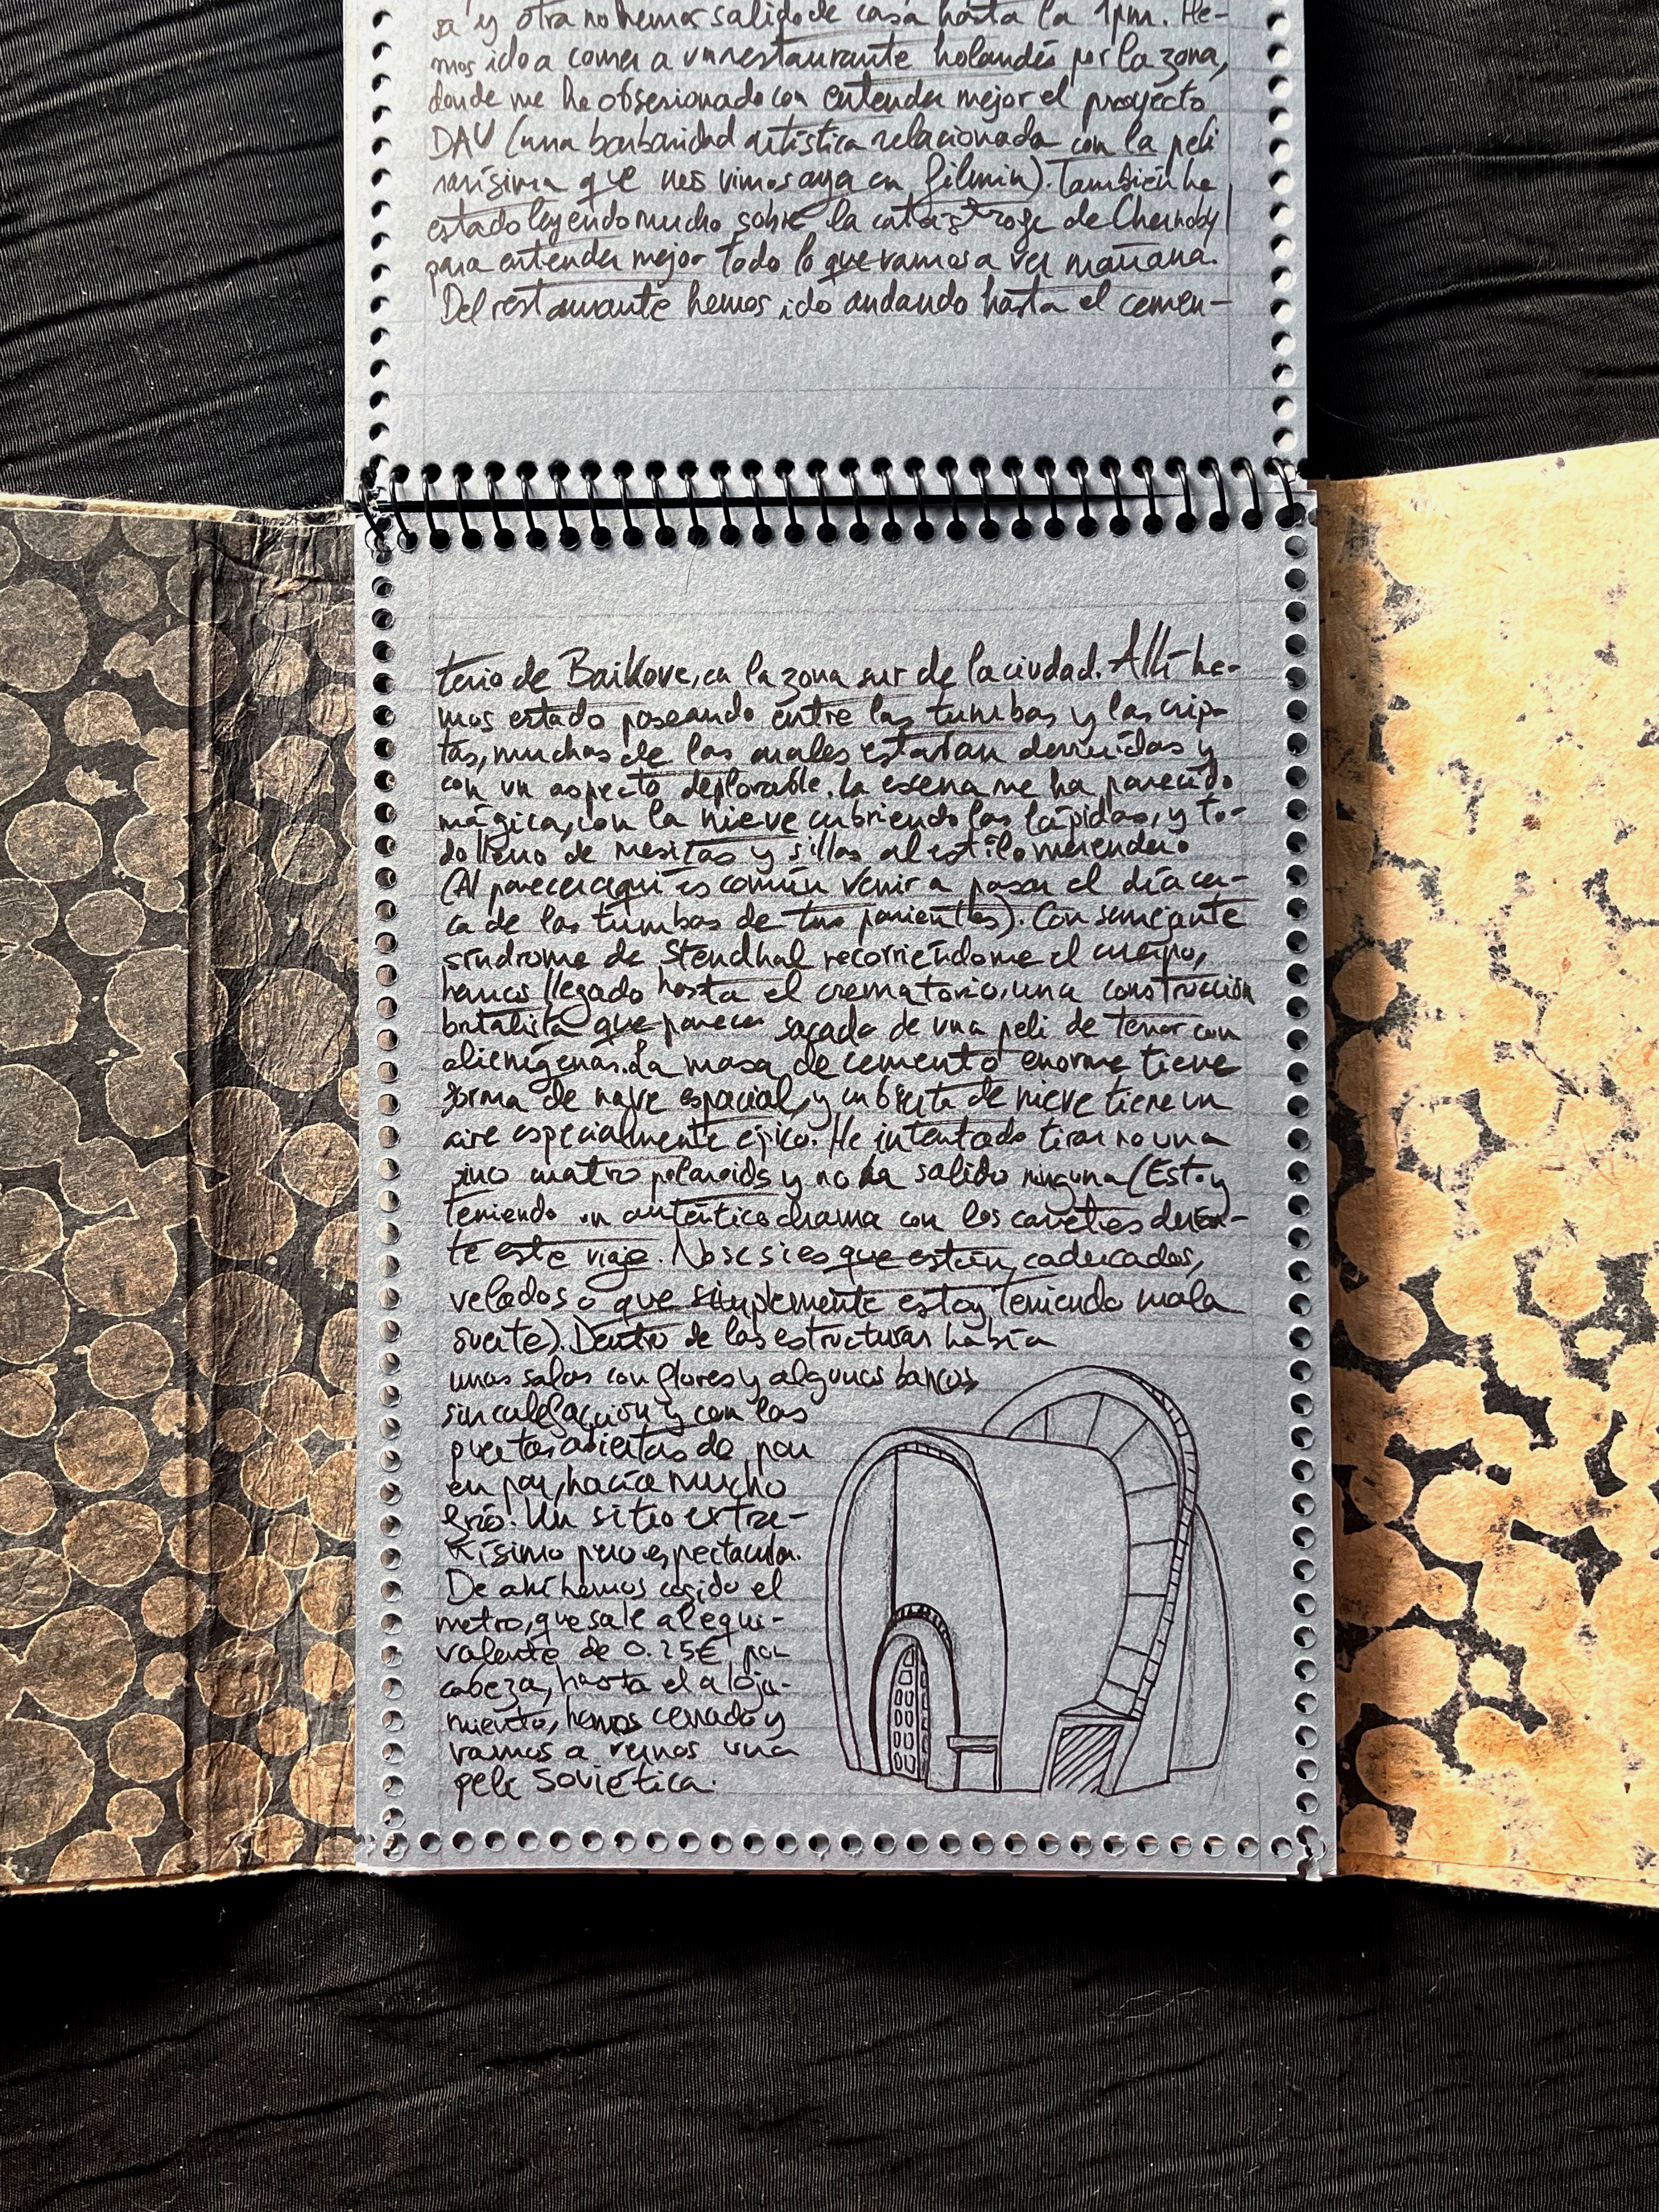 sa y otra no hemos salido de casa hasta la 1pm. He-
mos ido a comer a un restaurante holandés por la zona,
donde me he obsesionado con entender mejor el proyecto
DAU (una barbaridad artística relacionada con la peli
rarísima que nos vimos ayer en filmin). También he
estado leyendo mucho sobre la catástrofe de Chernobyl
para entender mejor todo lo que vamos a ver mañana.
Del restaurante hemos ido andando hasta el cemen-
terio de Baikove, en la zona sur de la ciudad. Allí he-
mos estado paseando entre las tumbas y las crip-
tas, muchas de las cuales estaban derruidas y
con un aspecto deplorable. La escena me ha parecido
mágica, con la nieve cubriendo las lápidas, y to-
do lleno de mesitas y sillas al estilo merendero
(Al parecer aquí es común venir a pasar el día cer-
ca de las tumbas de tus parientes). Con semejante
síndrome de Stendhal recorriéndome el cuerpo,
hemos llegado hasta el crematorio, una construcción
brutalista que parece sacada de una peli de terror con
alienígenas. La masa de cemento enorme tiene
forma de nave espacial, y cubierta de nieve tiene un
aire especialmente épico. He intentado tirar no una
sino cuatro polaroids y no ha salido ninguna (Estoy
teniendo un auténtico drama con los carretes duran-
te este viaje. No se si es que están caducados,
velados o que simplemente estoy teniendo mala
suerte). Dentro de las estructuras había
unas salas con flores y algunos bancos
sin calefacción y con las
puertas abiertas de par
en par, hacía mucho
frío. Un sitio extra-
ñísimo pero espectacular.
De ahí hemos cogido el
metro, que sale al equi-
valente de 0.25€ por
cabeza, hasta el aloja-
miento, hemos cenado y
vamos a vernos una
peli soviética.